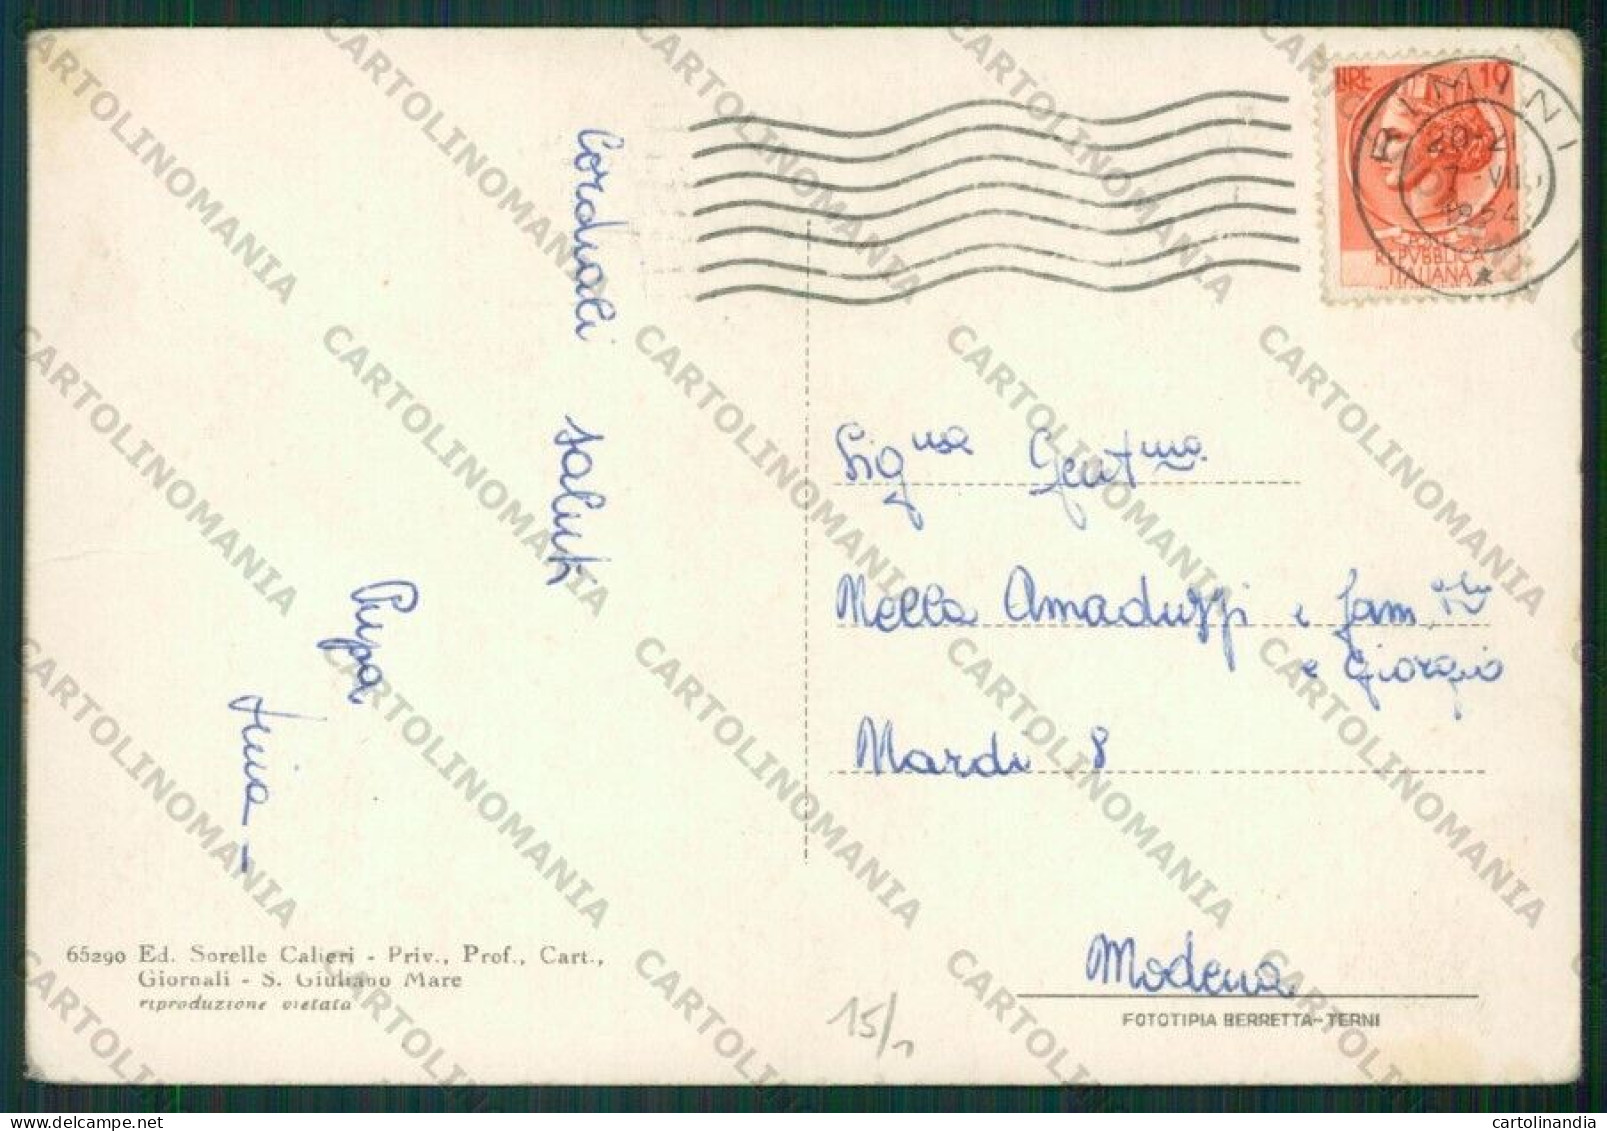 LIRE 10
RIMINI
7-VII
1954
POSTE
REPVBBLICA
ITALIANA
Cordiali saluti
Pupa
Sig.na Gent.ma
Nella Amaduzzi e fam.
e Giorgio
8
Modena
65290 Ed. Sorelle Calieri - Priv., Prof., Cart.,
Giornali - S. Giuliano Mare
riproduzione vietata
15/1
FOTOTIPIA BERRETTA-TERNI
CARTOLINOMANIA
cartolinandia